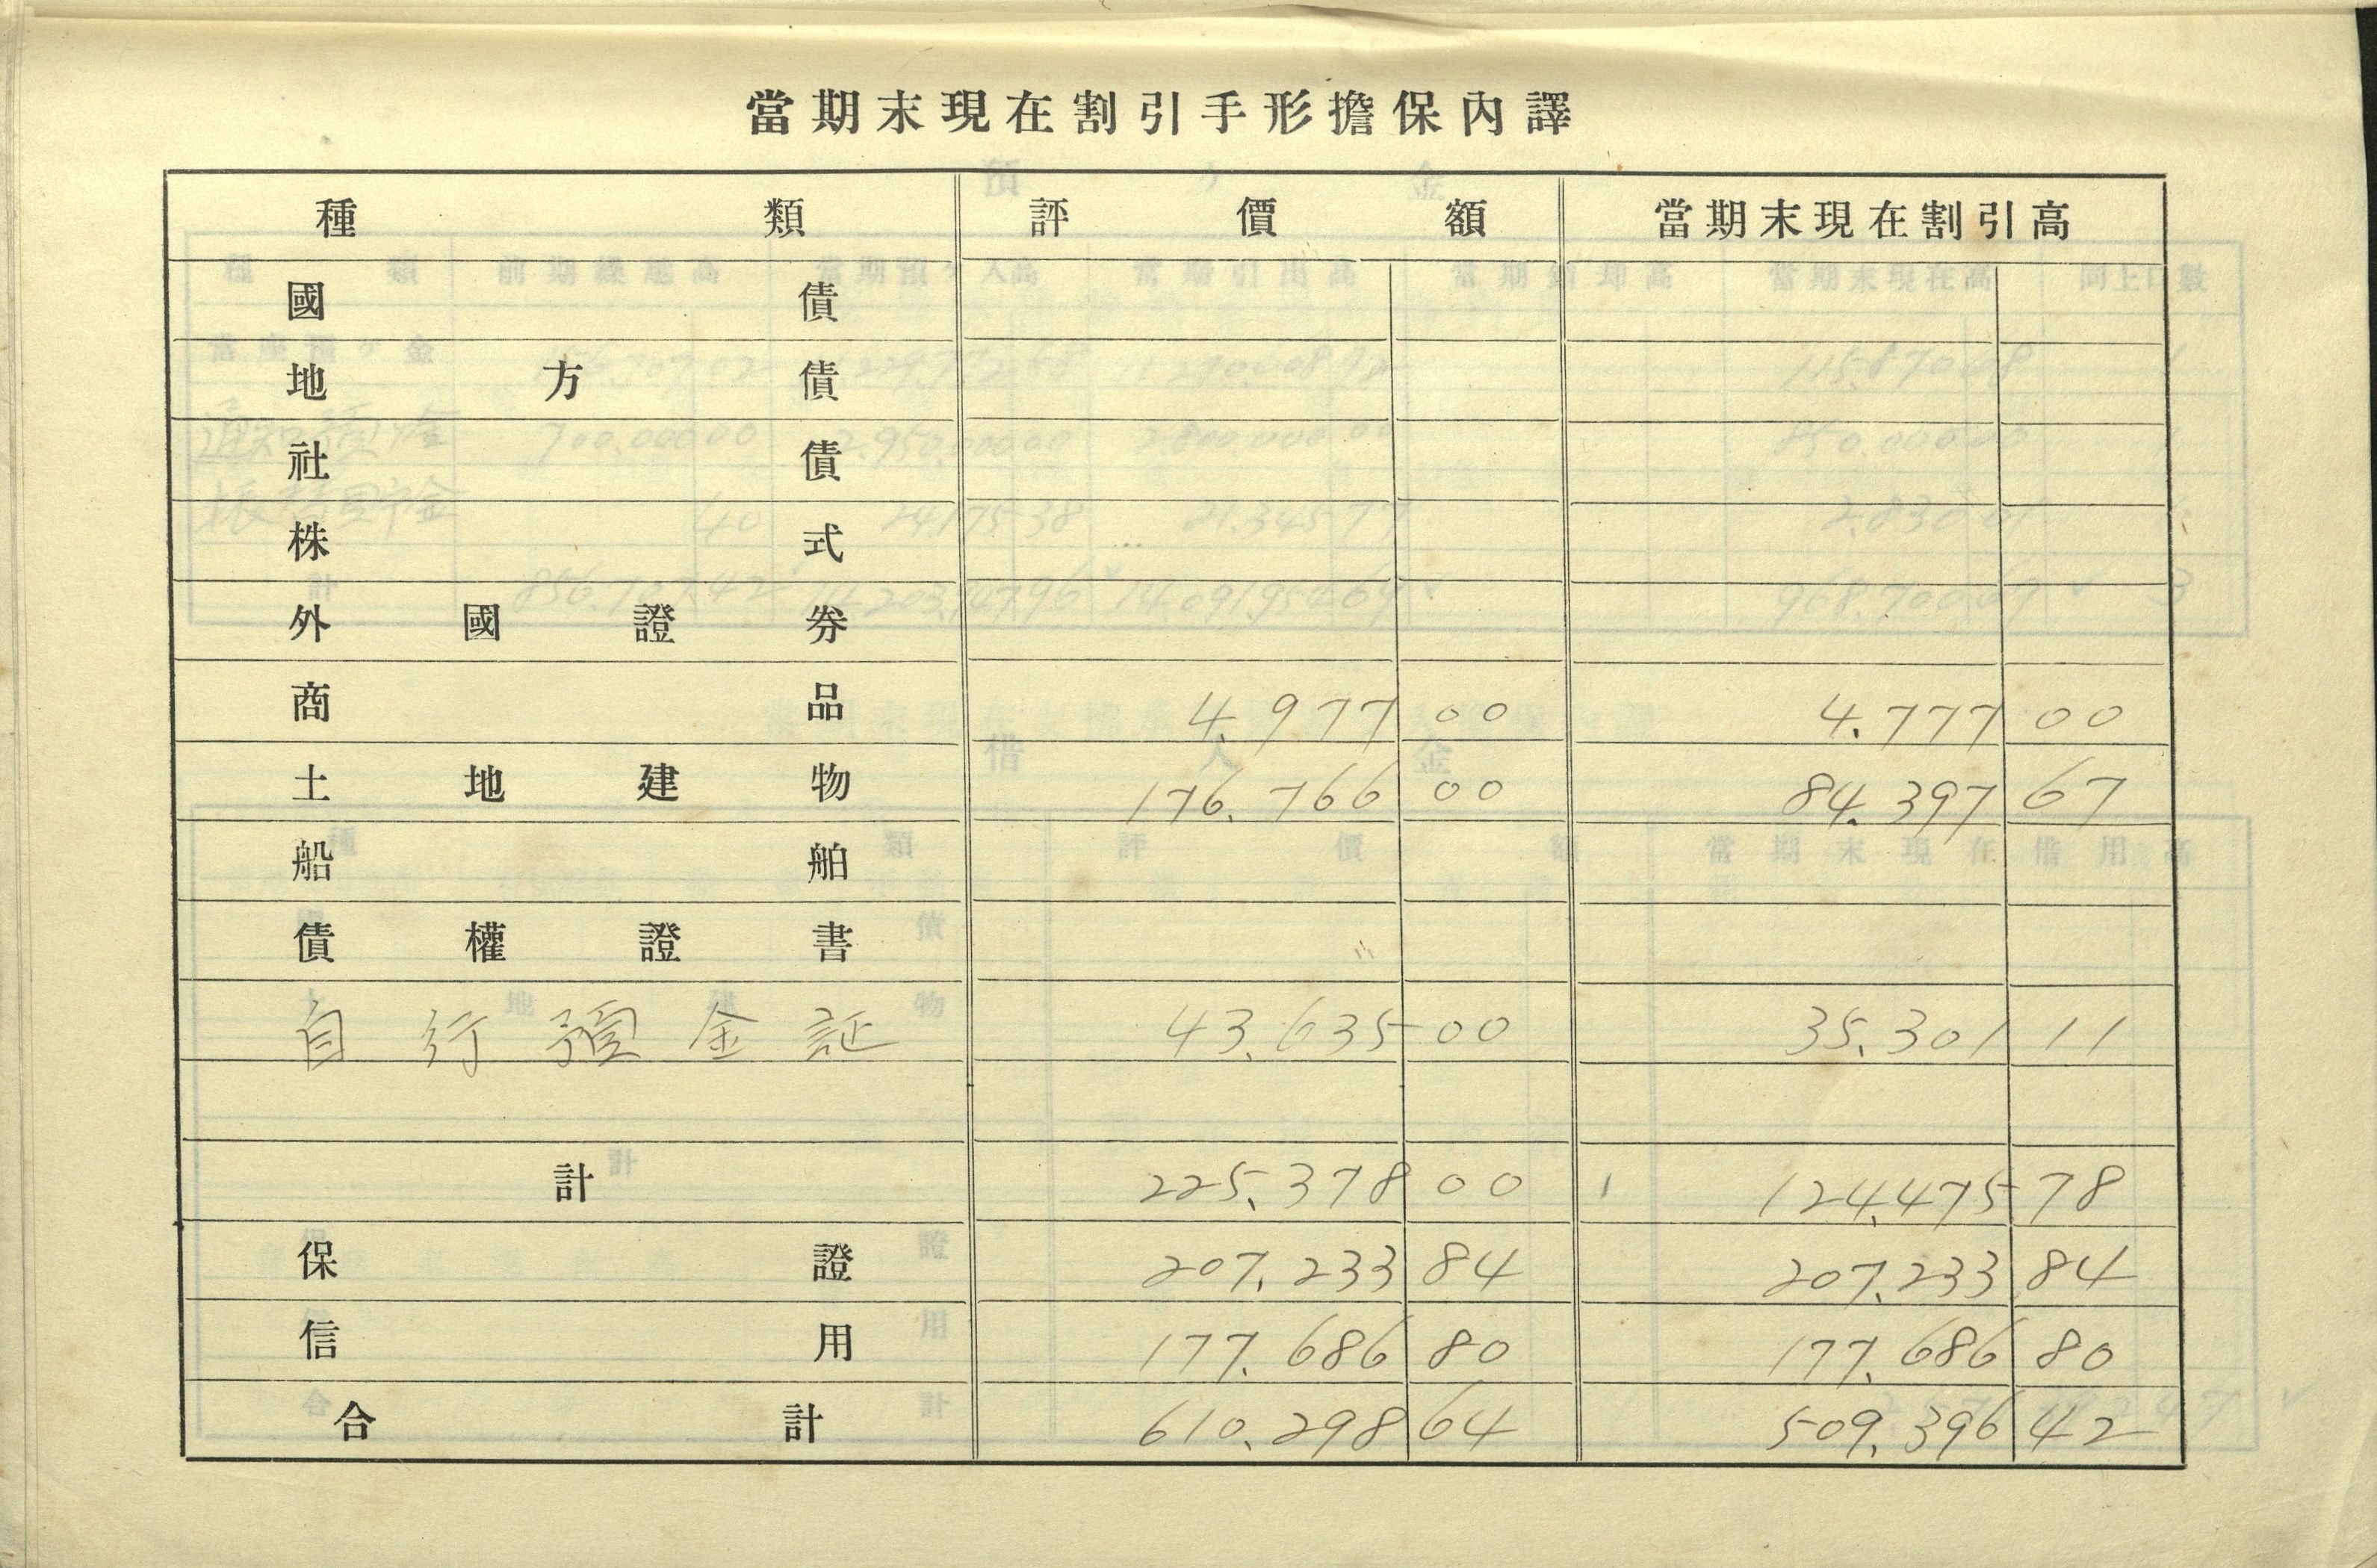 當期末現在割引手形擔保內譯
種類 評價額 當期末現在割引高
國債
地方債
社債
株式
外國證券
商品 4.977 00 4.777 00
土地建物 176.766 00 84.397 67
船舶
債權證書
自行預金証 43.635 00 35.301 11
計 225.378 00 124.475 78
保證 207.233 84 207.233 84
信用 177.686 80 177.686 80
合計 610.298 64 509.396 42